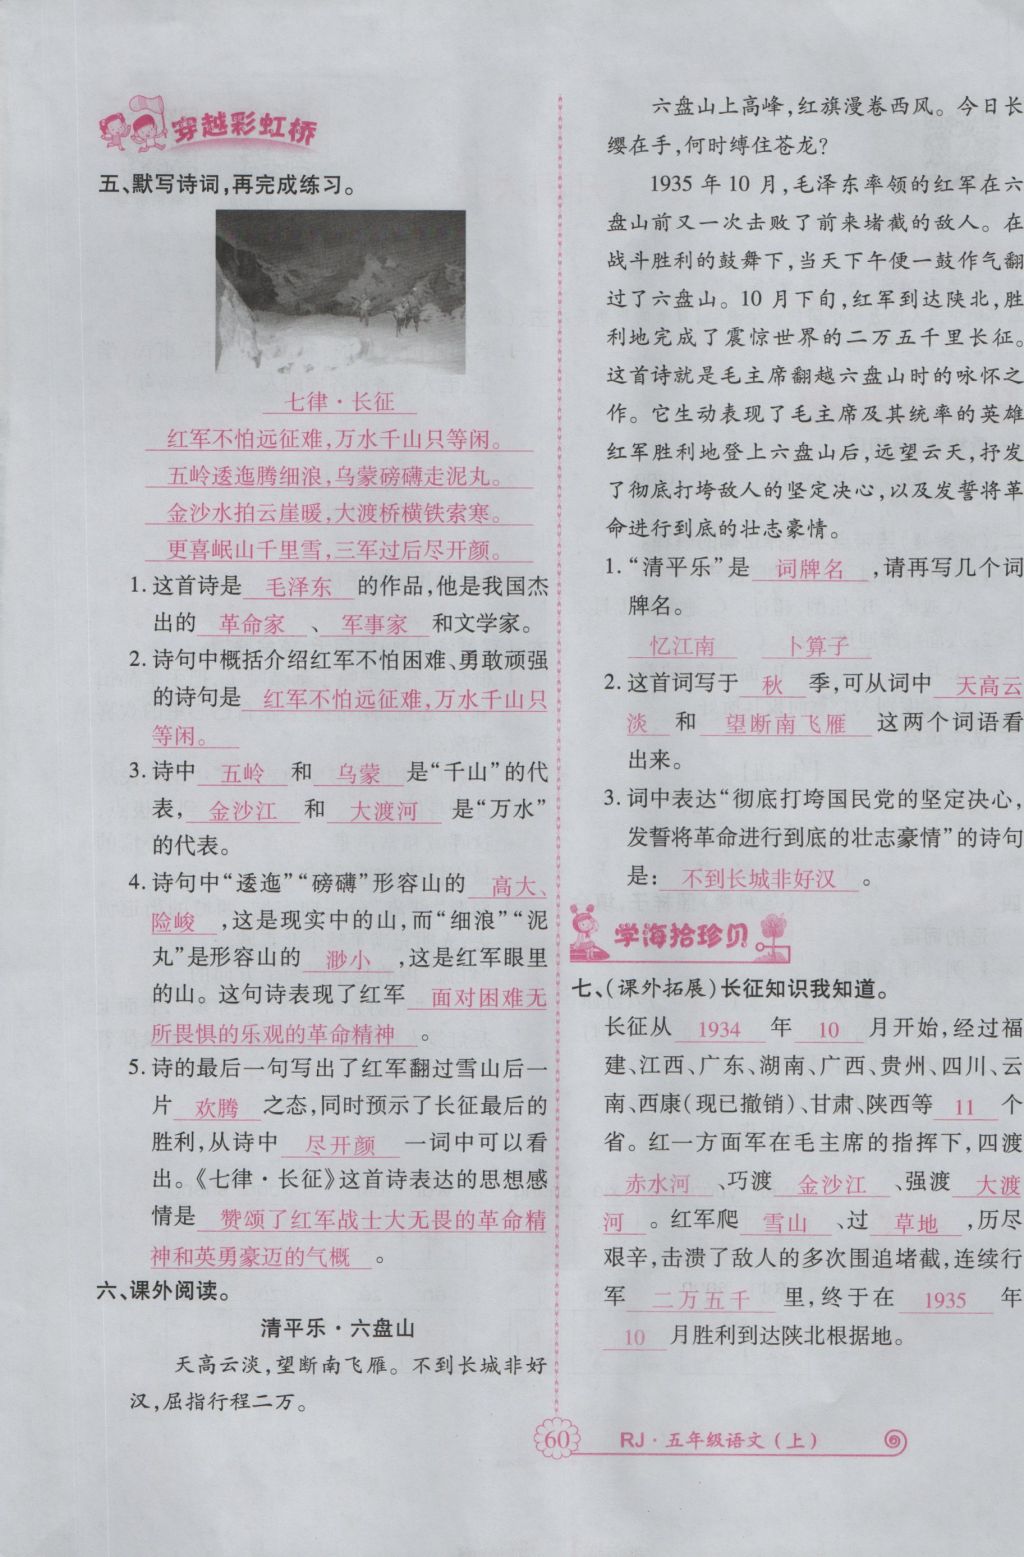 穿越彩虹桥
五、默写诗词,再完成练习。
七律·长征
红军不怕远征难,万水千山只等闲。
五岭逶迤腾细浪,乌蒙磅礴走泥丸。
金沙水拍云崖暖,大渡桥横铁索寒。
更喜岷山千里雪,三军过后尽开颜。
1. 这首诗是 毛泽东 的作品,他是我国杰
出的 革命家 、 军事家 和文学家。
2. 诗句中概括介绍红军不怕困难、勇敢顽强
的诗句是 红军不怕远征难,万水千山只
等闲。
3. 诗中 五岭 和 乌蒙 是“千山”的代
表, 金沙江 和 大渡河 是“万水”
的代表。
4. 诗句中“逶迤”“磅礴”形容山的 高大、
险峻 ,这是现实中的山,而“细浪”“泥
丸”是形容山的 渺小 ,这是红军眼里
的山。这句诗表现了红军 面对困难无
所畏惧的乐观的革命精神 。
5. 诗的最后一句写出了红军翻过雪山后一
片 欢腾 之态,同时预示了长征最后的
胜利,从诗中 尽开颜 一词中可以看
出。《七律·长征》这首诗表达的思想感
情是 赞颂了红军战士大无畏的革命精
神和英勇豪迈的气概 。
六、课外阅读。
清平乐·六盘山
天高云淡,望断南飞雁。不到长城非好
汉,屈指行程二万。
六盘山上高峰,红旗漫卷西风。今日长
缨在手,何时缚住苍龙?
1935 年 10 月,毛泽东率领的红军在六
盘山前又一次击败了前来堵截的敌人。在
战斗胜利的鼓舞下,当天下午便一鼓作气翻
过了六盘山。10 月下旬,红军到达陕北,胜
利地完成了震惊世界的二万五千里长征。
这首诗就是毛主席翻越六盘山时的咏怀之
作。它生动表现了毛主席及其统率的英雄
红军胜利地登上六盘山后,远望云天,抒发
了彻底打垮敌人的坚定决心,以及发誓将革
命进行到底的壮志豪情。
1. “清平乐”是 词牌名 ,请再写几个词
牌名。
忆江南 卜算子
2. 这首词写于 秋 季,可从词中 天高云
淡 和 望断南飞雁 这两个词语看
出来。
3. 词中表达“彻底打垮国民党的坚定决心,
发誓将革命进行到底的壮志豪情”的诗句
是: 不到长城非好汉 。
学海拾珍贝
七、(课外拓展)长征知识我知道。
长征从 1934 年 10 月开始,经过福
建、江西、广东、湖南、广西、贵州、四川、云
南、西康(现已撤销)、甘肃、陕西等 11 个
省。红一方面军在毛主席的指挥下,四渡
赤水河 、巧渡 金沙江 、强渡 大渡
河 。红军爬 雪山 、过 草地 ,历尽
艰辛,击溃了敌人的多次围追堵截,连续行
军 二万五千 里,终于在 1935 年
10 月胜利到达陕北根据地。
60 RJ·五年级语文(上)